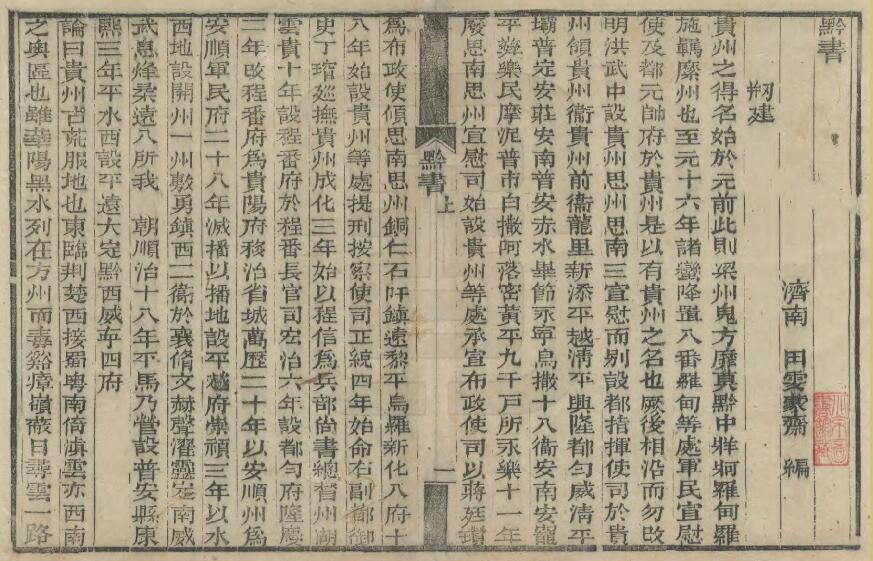 黔書
濟南 田雯蒙齋 編
刱建
貴州之得名始於元前此則梁州鬼方靡莫黔中牂牁羅甸羅
施羈縻州也至元十六年諸蠻降置八番羅甸等處軍民宣慰
使及都元帥府於貴州是以有貴州之名也厥後相沿而勿攺
明洪武中設貴州思州思南三宣慰而别設都指揮使司於貴
州領貴州衞貴州前衞龍里新添平越淸平興隆都勻威淸平
壩普定安莊安南普安赤水畢節永寧烏撒十八衞安南安龍
平彝樂民摩泥普市白撒阿落密黃平九千戸所永樂十一年
廢思南思州宣慰司始設貴州等處承宣布政使司以蔣廷瓚
黔書 上 一
爲布政使領思南思州銅仁石阡鎮遠黎平烏羅新化八府十
八年始設貴州等處提刑按察使司正統四年始命右副都御
史丁璿廵撫貴州成化三年始以程信爲兵部尚書總督川湖
雲貴十年設程番府於程番長官司宏治六年設都勻府隆慶
二年攺程番府爲貴陽府移治省城萬歷二十年以安順州爲
安順軍民府二十八年滅播以播地設平越府崇禎三年以水
西地設開州一州敷勇鎮西二衞於襄脩文赫聲濯靈定南威
武息烽柔遠八所我 朝順治十八年平馬乃營設普安縣康
熙三年平水西設平遠大定黔西威寧四府
論曰貴州古荒服地也東臨荆楚西接蜀粵南倚滇雲亦西南
之奥區也雖華陽黑水列在方州而毒谿瘴嶺蔽日尋雲一路